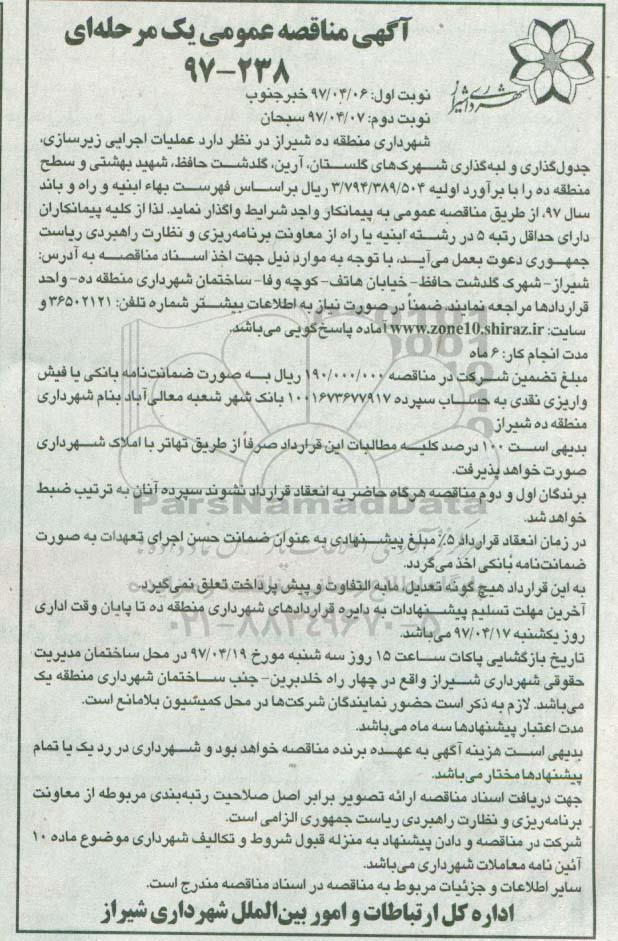 آگهی مناقصه عمومی یک مرحله‌ای
۹۷-۲۳۸
شهرداری شیراز
نوبت اول: ۹۷/۰۴/۰۶ خبرجنوب
نوبت دوم: ۹۷/۰۴/۰۷ سبحان
شهرداری منطقه ده شیراز در نظر دارد عملیات اجرایی زیرسازی،
جدول‌گذاری و لبه‌گذاری شهرک‌های گلستان، آرین، گلدشت حافظ، شهید بهشتی و سطح
منطقه ده را با برآورد اولیه ۳/۷۹۴/۳۸۹/۵۰۴ ریال براساس فهرست بهاء ابنیه و راه و باند
سال ۹۷، از طریق مناقصه عمومی به پیمانکار واجد شرایط واگذار نماید. لذا از کلیه پیمانکاران
دارای حداقل رتبه ۵ در رشته ابنیه یا راه از معاونت برنامه‌ریزی و نظارت راهبردی ریاست
جمهوری دعوت بعمل می‌آید، با توجه به موارد ذیل جهت اخذ اسناد مناقصه به آدرس:
شیراز- شهرک گلدشت حافظ- خیابان هاتف- کوچه وفا- ساختمان شهرداری منطقه ده- واحد
قراردادها مراجعه نمایند. ضمناً در صورت نیاز به اطلاعات بیشتر شماره تلفن: ۳۶۵۰۲۱۲۱ و
سایت: www.zone10.shiraz.ir آماده پاسخ‌گویی می‌باشد.
مدت انجام کار: ۶ ماه
مبلغ تضمین شرکت در مناقصه ۱۹۰/۰۰۰/۰۰۰ ریال به صورت ضمانت‌نامه بانکی یا فیش
واریزی نقدی به حساب سپرده ۱۰۰۱۶۷۳۶۷۷۹۱۷ بانک شهر شعبه معالی‌آباد بنام شهرداری
منطقه ده شیراز
بدیهی است ۱۰۰ درصد کلیه مطالبات این قرارداد صرفاً از طریق تهاتر با املاک شهرداری
صورت خواهد پذیرفت.
برندگان اول و دوم مناقصه هرگاه حاضر به انعقاد قرارداد نشوند سپرده آنان به ترتیب ضبط
خواهد شد.
ParsNamadData
در زمان انعقاد قرارداد ۵٪ مبلغ پیشنهادی به عنوان ضمانت حسن اجرای تعهدات به صورت
ضمانت‌نامه بانکی اخذ می‌گردد.
به این قرارداد هیچ گونه تعدیل، مابه التفاوت و پیش پرداخت تعلق نمی‌گیرد.
آخرین مهلت تسلیم پیشنهادات به دایره قراردادهای شهرداری منطقه ده تا پایان وقت اداری
روز یکشنبه ۹۷/۰۴/۱۷ می‌باشد.
۰۲۱-۸۸۳۴۹۶۷۰-۵
تاریخ بازگشایی پاکات ساعت ۱۵ روز سه شنبه مورخ ۹۷/۰۴/۱۹ در محل ساختمان مدیریت
حقوقی شهرداری شیراز واقع در چهار راه خلدبرین- جنب ساختمان شهرداری منطقه یک
می‌باشد. لازم به ذکر است حضور نمایندگان شرکت‌ها در محل کمیسیون بلامانع است.
مدت اعتبار پیشنهادها سه ماه می‌باشد.
بدیهی است هزینه آگهی به عهده برنده مناقصه خواهد بود و شهرداری در رد یک یا تمام
پیشنهادها مختار می‌باشد.
جهت دریافت اسناد مناقصه ارائه تصویر برابر اصل صلاحیت رتبه‌بندی مربوطه از معاونت
برنامه‌ریزی و نظارت راهبردی ریاست جمهوری الزامی است.
شرکت در مناقصه و دادن پیشنهاد به منزله قبول شروط و تکالیف شهرداری موضوع ماده ۱۰
آئین نامه معاملات شهرداری می‌باشد.
سایر اطلاعات و جزئیات مربوط به مناقصه در اسناد مناقصه مندرج است.
اداره کل ارتباطات و امور بین‌الملل شهرداری شیراز